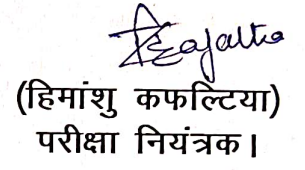 (हिमांशु कफल्टिया)
परीक्षा नियंत्रक।